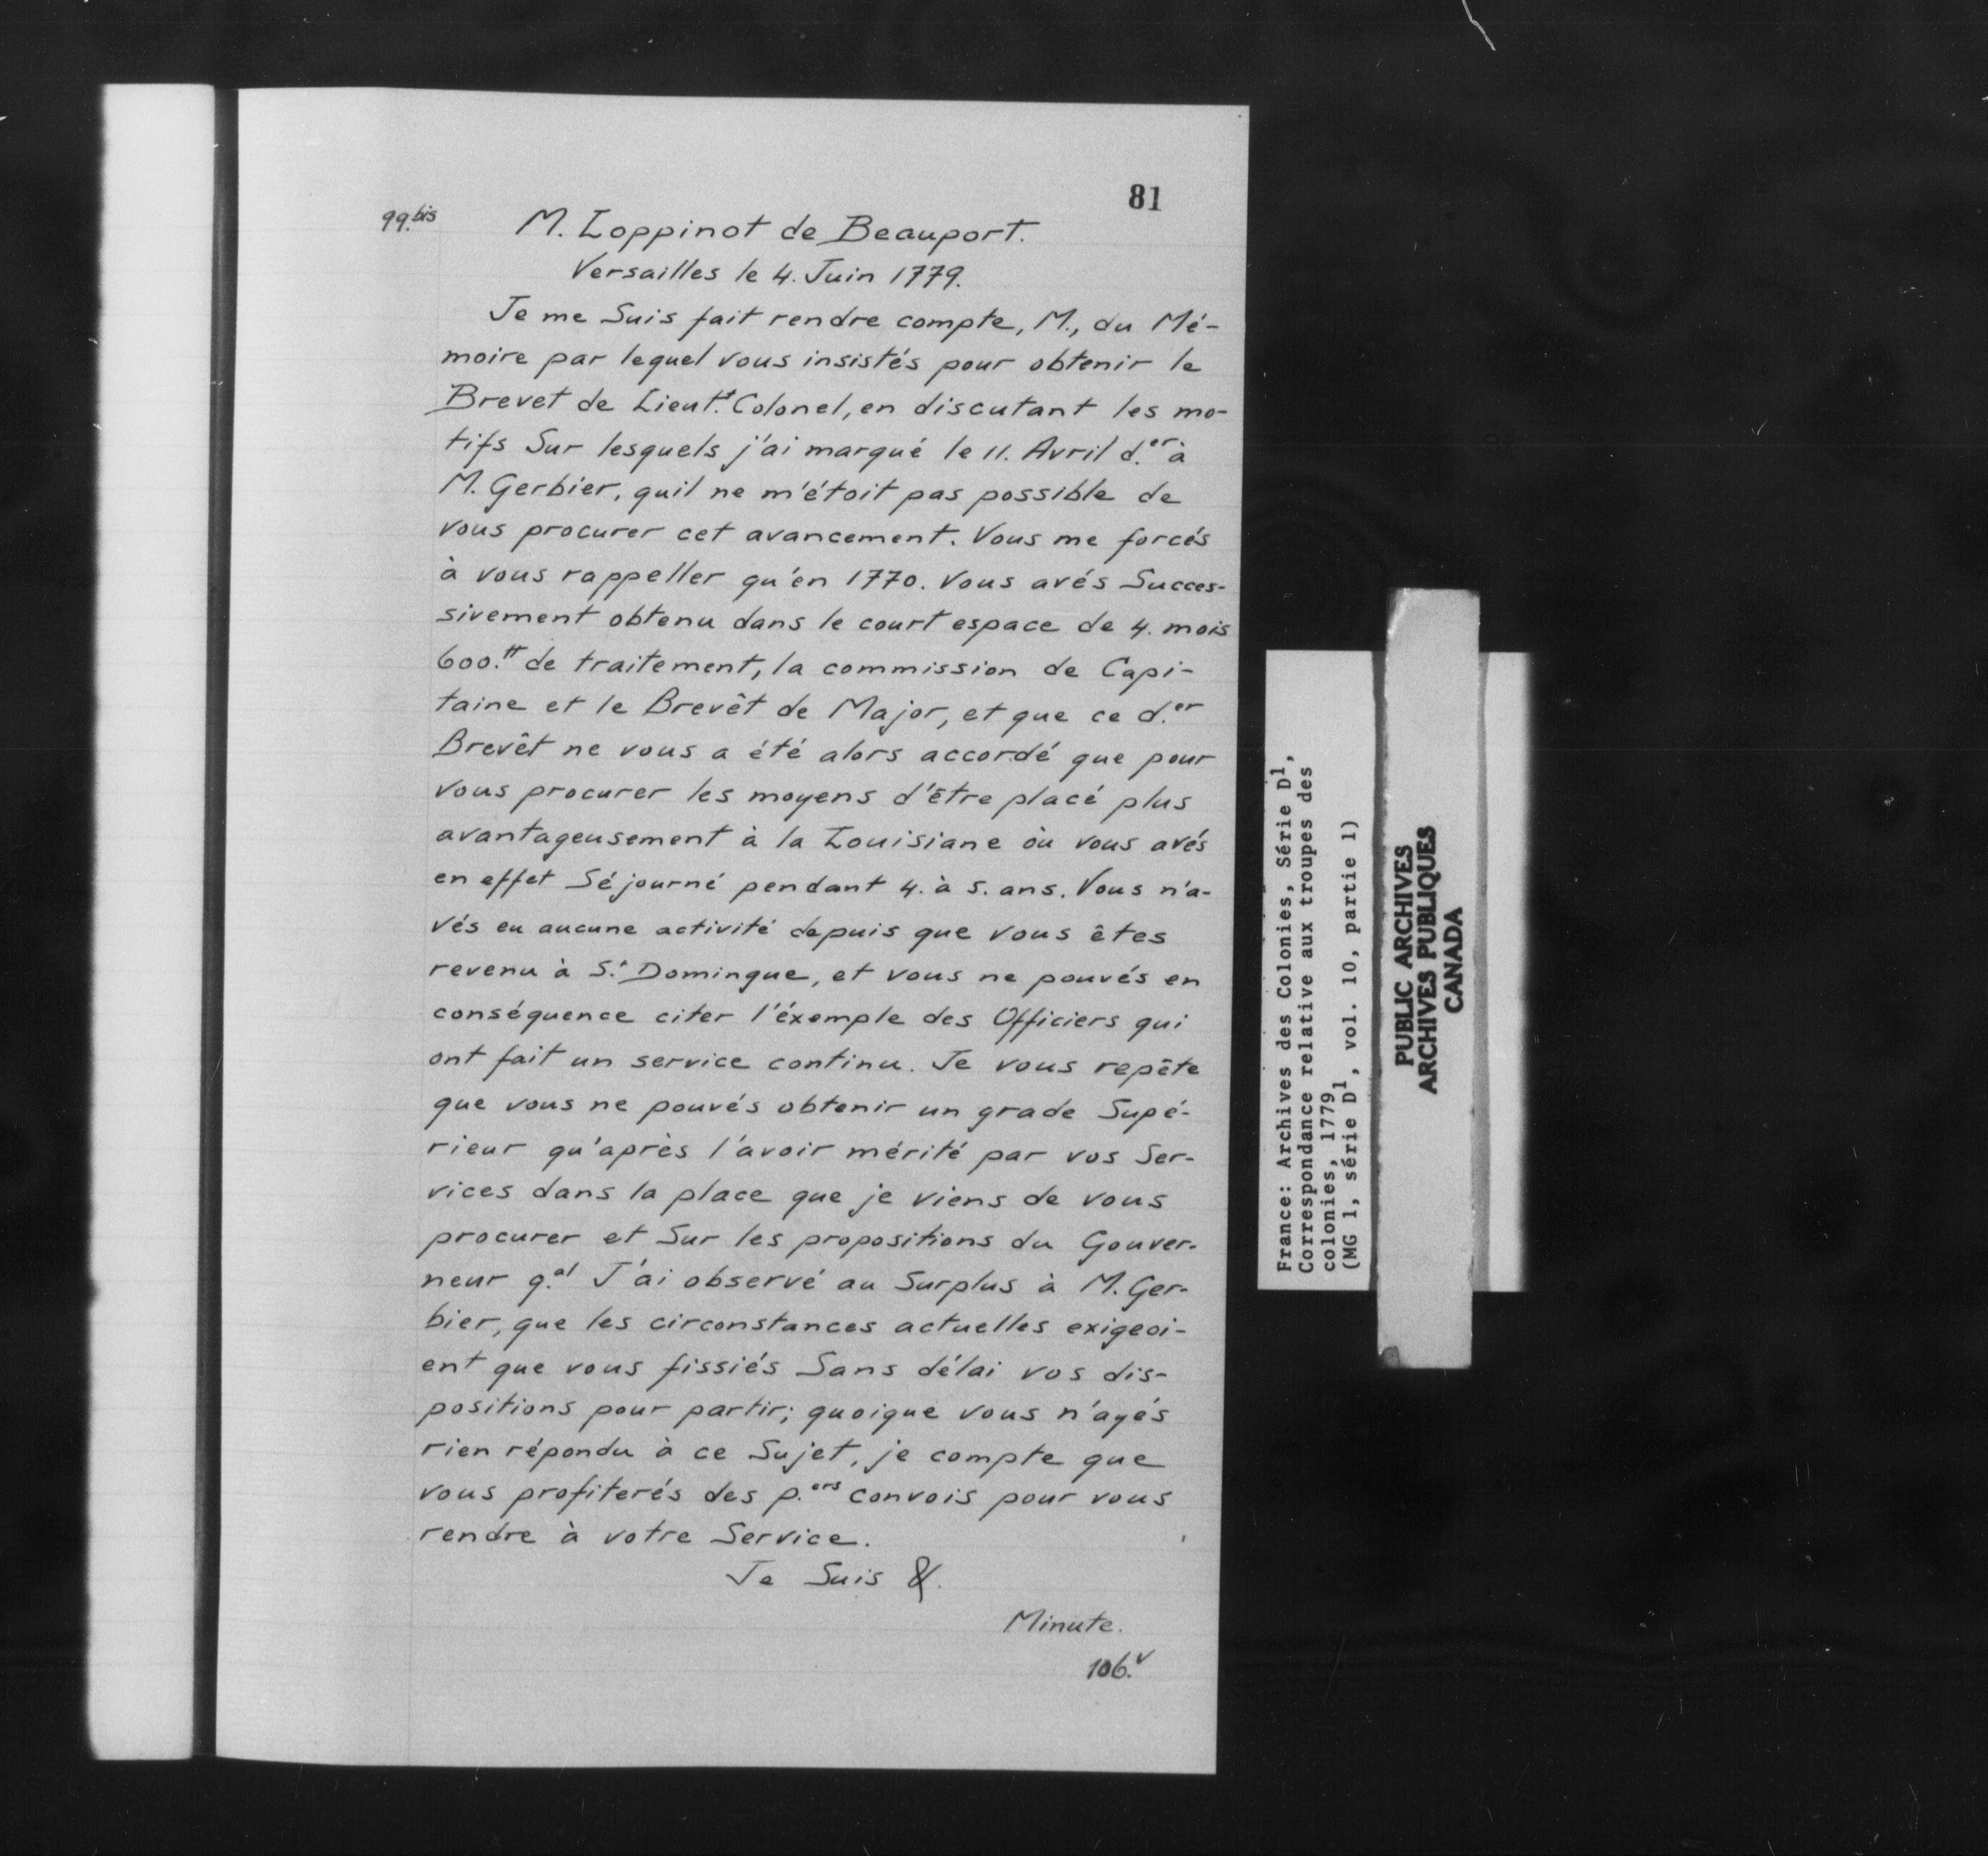 81
99.bis
M. Loppinot de Beauport.
Versailles le 4. Juin 1779.
Je me Suis fait rendre compte, M., du Mé-
moire par lequel vous insistés pour obtenir le
Brevet de Lieut.t Colonel, en discutant les mo-
tifs Sur lesquels j'ai marqué le 11. Avril d.er à
M. Gerbier, quil ne m'étoit pas possible de
vous procurer cet avancement. Vous me forcés
à vous rappeller qu'en 1770. vous avés Succes-
sivement obtenu dans le court espace de 4. mois
600.tt de traitement, la commission de Capi-
taine et le Brevêt de Major, et que ce d.er
Brevêt ne vous a été alors accordé que pour
vous procurer les moyens d'être placé plus
avantageusement à la Louisiane où vous avés
en effet Séjourné pendant 4. à 5. ans. Vous n'a-
vés eu aucune activité depuis que vous êtes
revenu à S.t Domingue, et vous ne pouvés en
conséquence citer l'éxemple des Officiers qui
ont fait un service continu. Je vous repête
que vous ne pouvés obtenir un grade Supé-
rieur qu'après l'avoir mérité par vos Ser-
vices dans la place que je viens de vous
procurer et Sur les propositions du Gouver-
neur g.al J'ai observé au Surplus à M. Ger-
bier, que les circonstances actuelles exigeoi-
ent que vous fissiés Sans délai vos dis-
positions pour partir; quoique vous n'ayés
rien répondu à ce Sujet, je compte que
vous profiterés des p.ers convois pour vous
rendre à votre Service.
Je Suis &.
Minute.
106.v
France: Archives des Colonies, Série D1,
Correspondance relative aux troupes des
colonies, 1779
(MG 1, série D1, vol. 10, partie 1)
PUBLIC ARCHIVES
ARCHIVES PUBLIQUES
CANADA